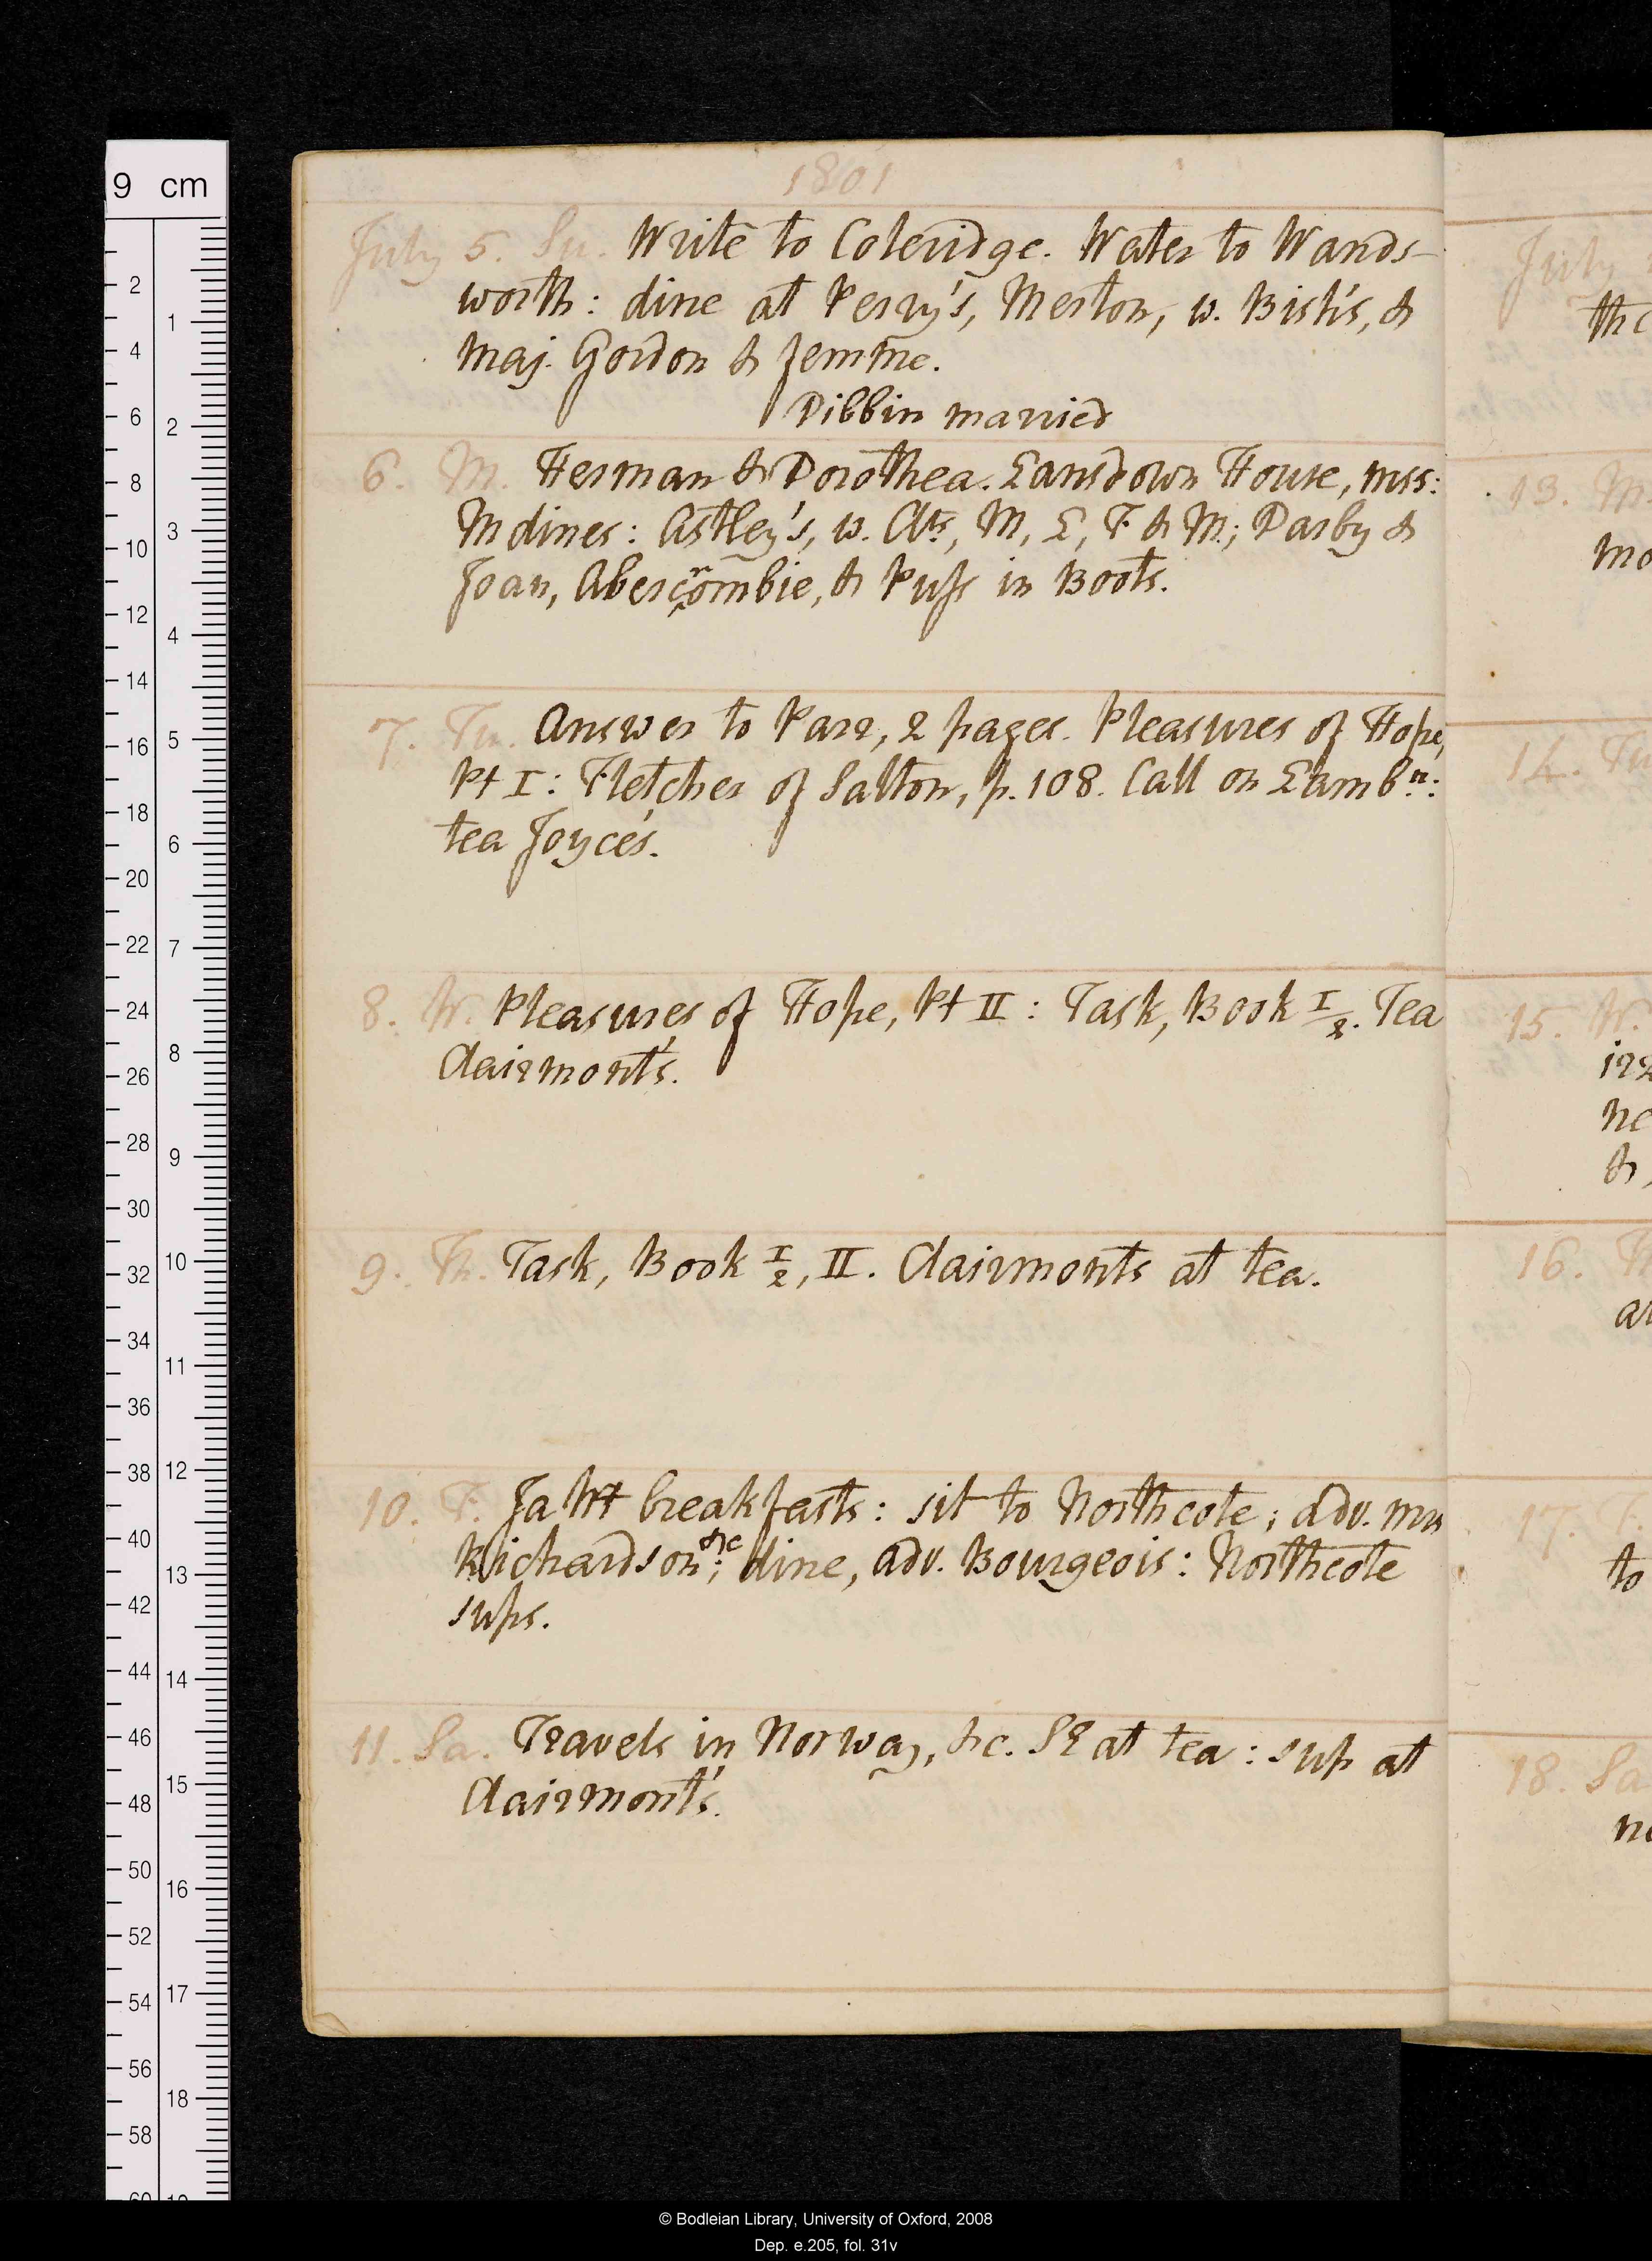 1801
July 5. Su. Write to Coleridge. Water to Wands-
worth: dine at Perry's, Merton, w. Bish's, &
Maj. Gordon & femme.
Dibbin married
6. M. Herman & Dorothea. Lansdown House, mss:
M dines: Astley's, w. Cts, M, L, F & M; Darby &
Joan, Abercrombie, & Puss in Boots.
7. Tu. Answer to Parr, 2 pages. Pleasures of Hope,
Pt I: Fletcher of Salton, p. 108. Call on Lambn:
tea Joyce's.
8. W. Pleasures of Hope, Pt II: Task, Book I/2. Tea
Clairmont's.
9. Th. Task, Book I/2, II. Clairmonts at tea.
10. F. Ja Wt breakfasts: sit to Northcote; adv. mrs
Richardson &c; dine, adv. Bourgeois: Northcote
sups.
11. Sa. Travels in Norway, &c. SE at tea: sup at
Clairmont's.
July
13. M
mo
14. Tu
15. W.
ne
&
16.
17. F.
to
18. Sa
9 cm
2
4
6
8
10
12
14
16
18
20
22
24
26
28
30
32
34
36
38
40
42
44
46
48
50
52
54
56
58
1
2
3
4
5
6
7
8
9
10
11
12
13
14
15
16
17
18
© Bodleian Library, University of Oxford, 2008
Dep. e.205, fol. 31v